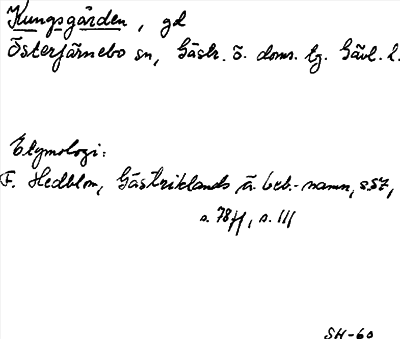 Kungsgården, gd
Österfärnebo sn, Gästr. ö. doms. lg. Gävl. l.
Etymologi:
F. Hedblom, Gästriklands ä. beb.-namn, s. 57,
s. 78ff, s. 111
SH-60